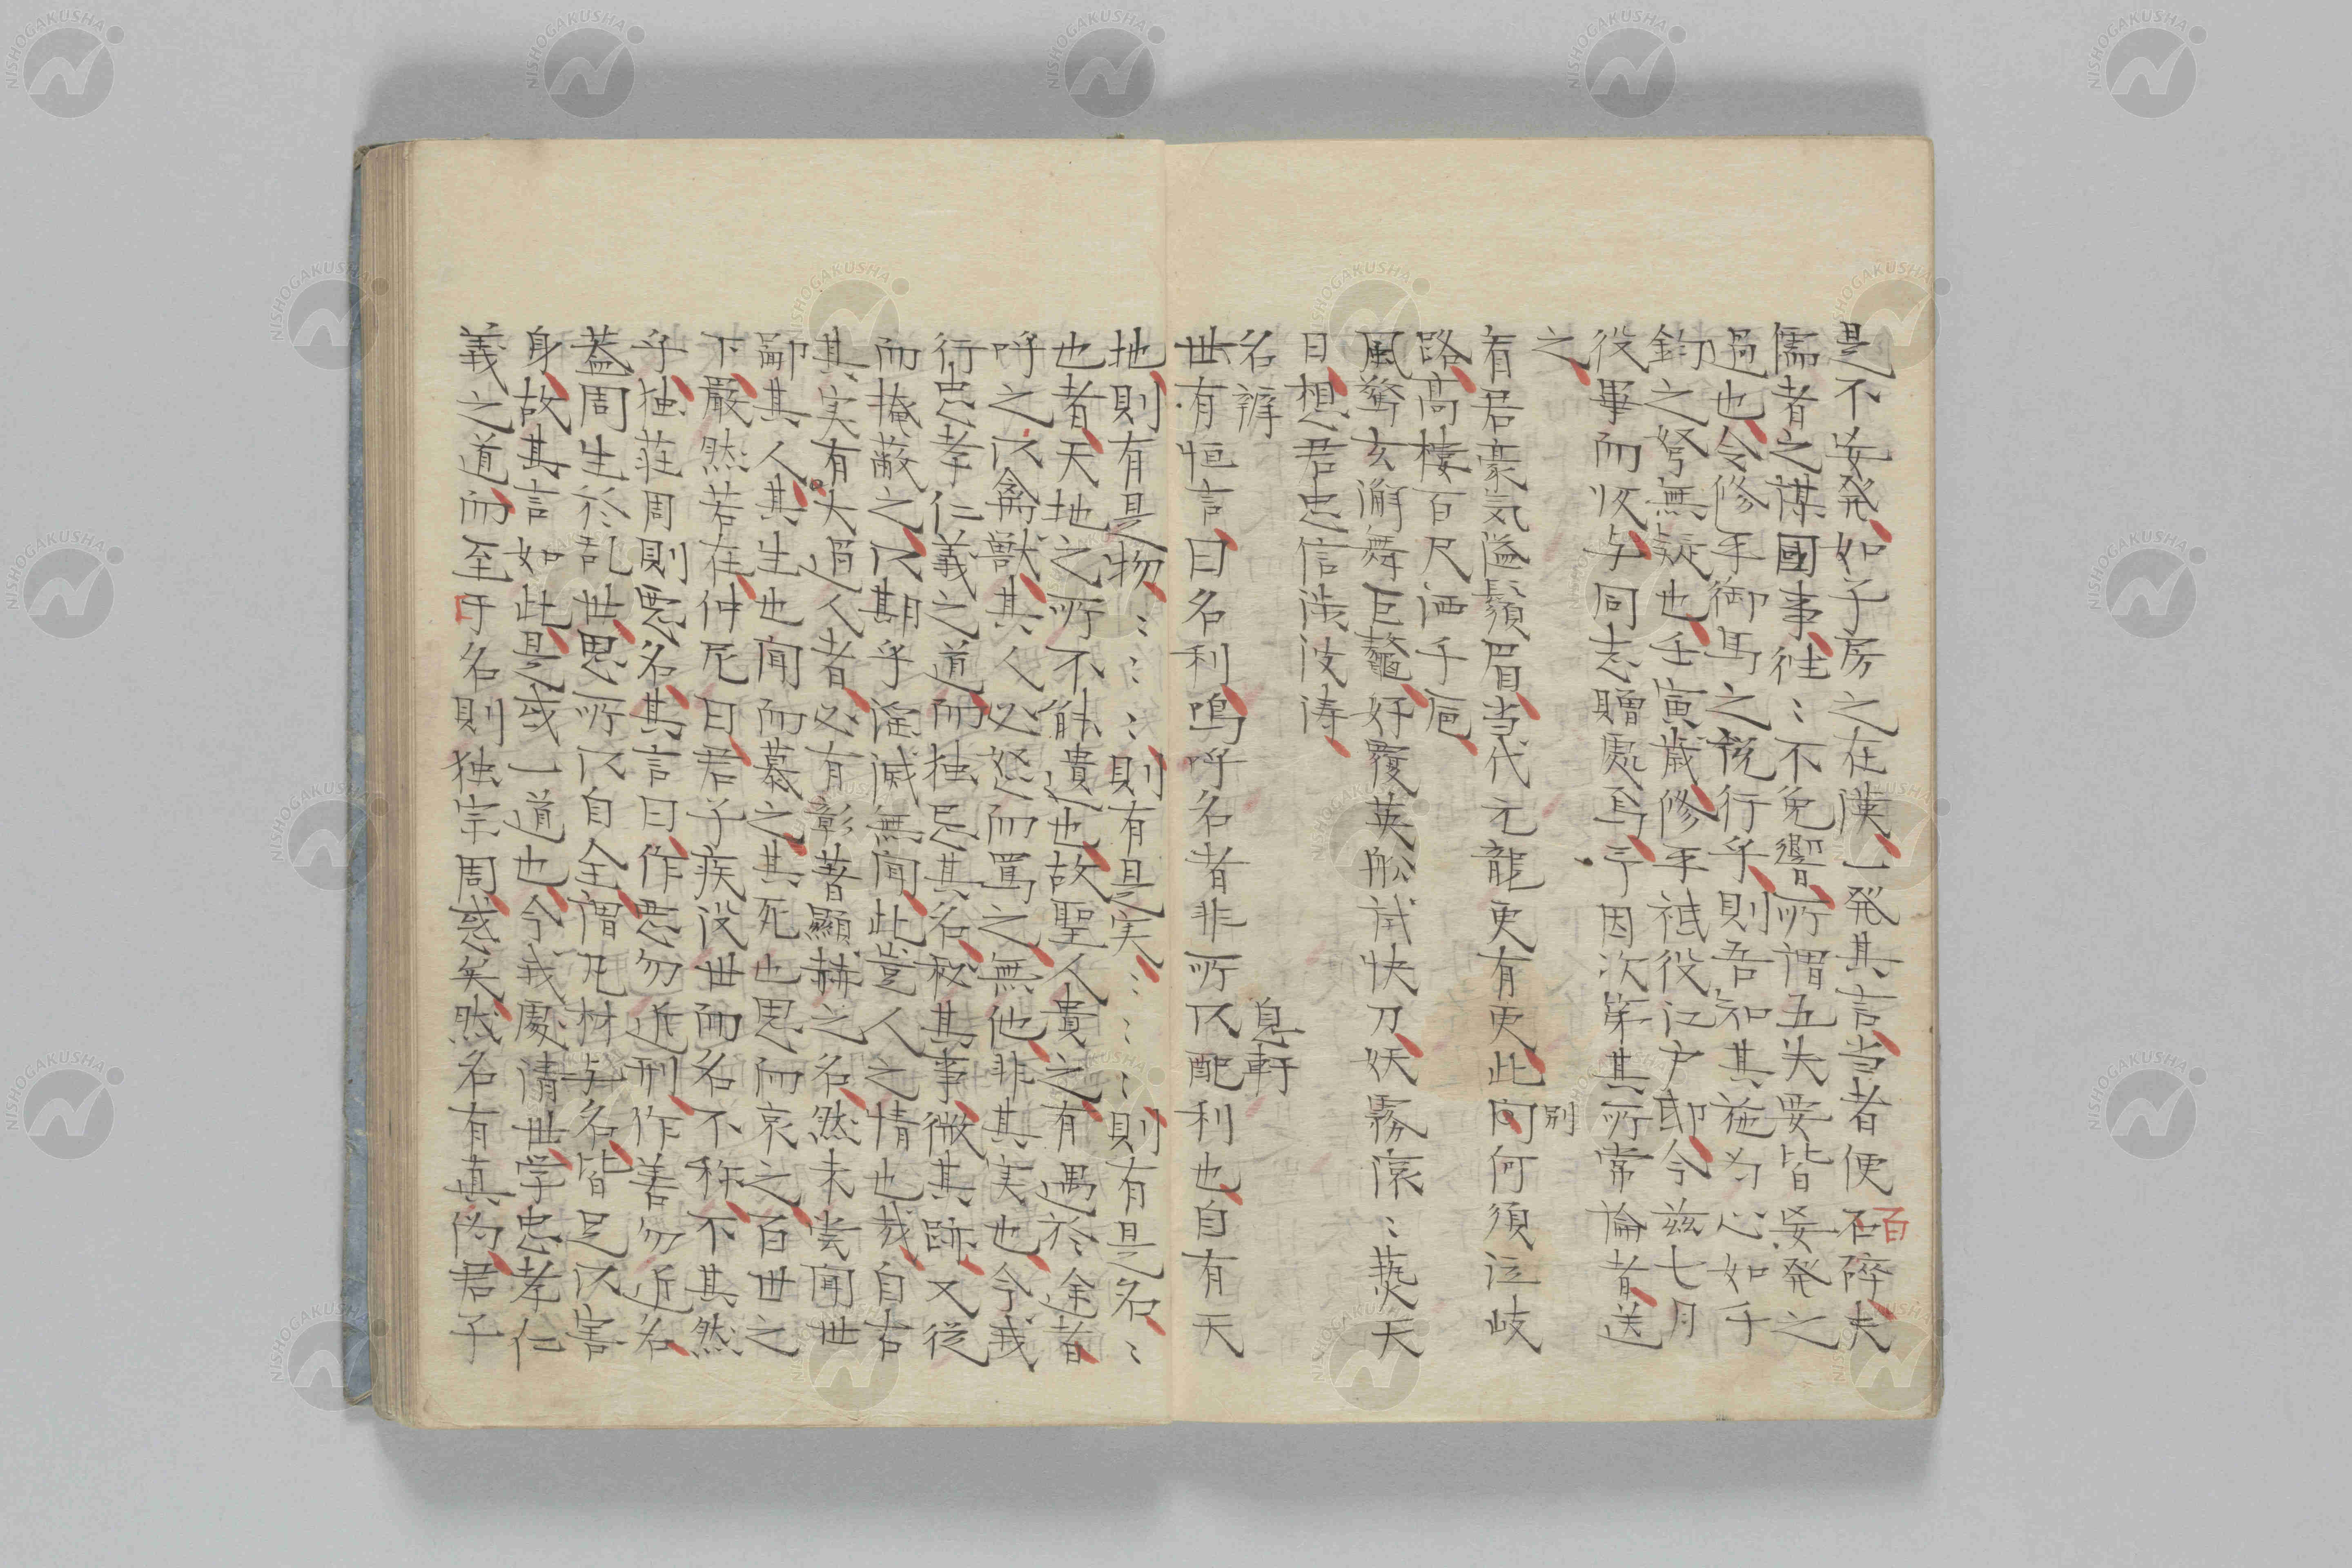 是不妄発如子房之在漢一発其言当者便石碎夫
百
儒者之謀國事往〻不免響所謂五失要皆妄発之
過也令修手御馬之銳行乎則吾知其施为心如手
鈞之弩無疑也壬寅歳修手祗役江户邸今茲七月
役畢而收与同志贈處焉予因次第其所常論者送
之
別
有君豪気溢鬚眉当代元龍更有更此向何須泣岐
路高樓百尺洒手巵
風驚玄瀚舞巨鼇好覆英舩試快刀妖霧滾〻蒸天
日想君忠信渉波涛
名辨
息軒
世有恒言曰名利嗚呼名者非所以配利也自有天
地則有是物〻〻〻〻則有是実〻〻〻〻則有是名〻
也者天地之所不能遺也故聖人貴之有遇於途者
呼之以禽獣其人必怒而罵之無他非其実也今我
行忠孝仁義之道而独忌其名秘其事微其跡又從
而掩蔽之以期乎湮滅無聞此豈人之情也哉自古
其実有大過人者必有彰著顯赫之名然未嘗聞世
鄙其人其生也聞而慕之其死也思而哀之百世之
下嚴然若在仲尼曰君子疾没世而名不称不其然
乎独荘周則悪名其言曰作悪勿近刑作善勿近名
蓋周生於乱世思所以自全謂凡材与名皆足以害
身故其言如此是或一道也今我處清世学忠孝仁
義之道而至于名則独宗周惑矣然名有真偽君子